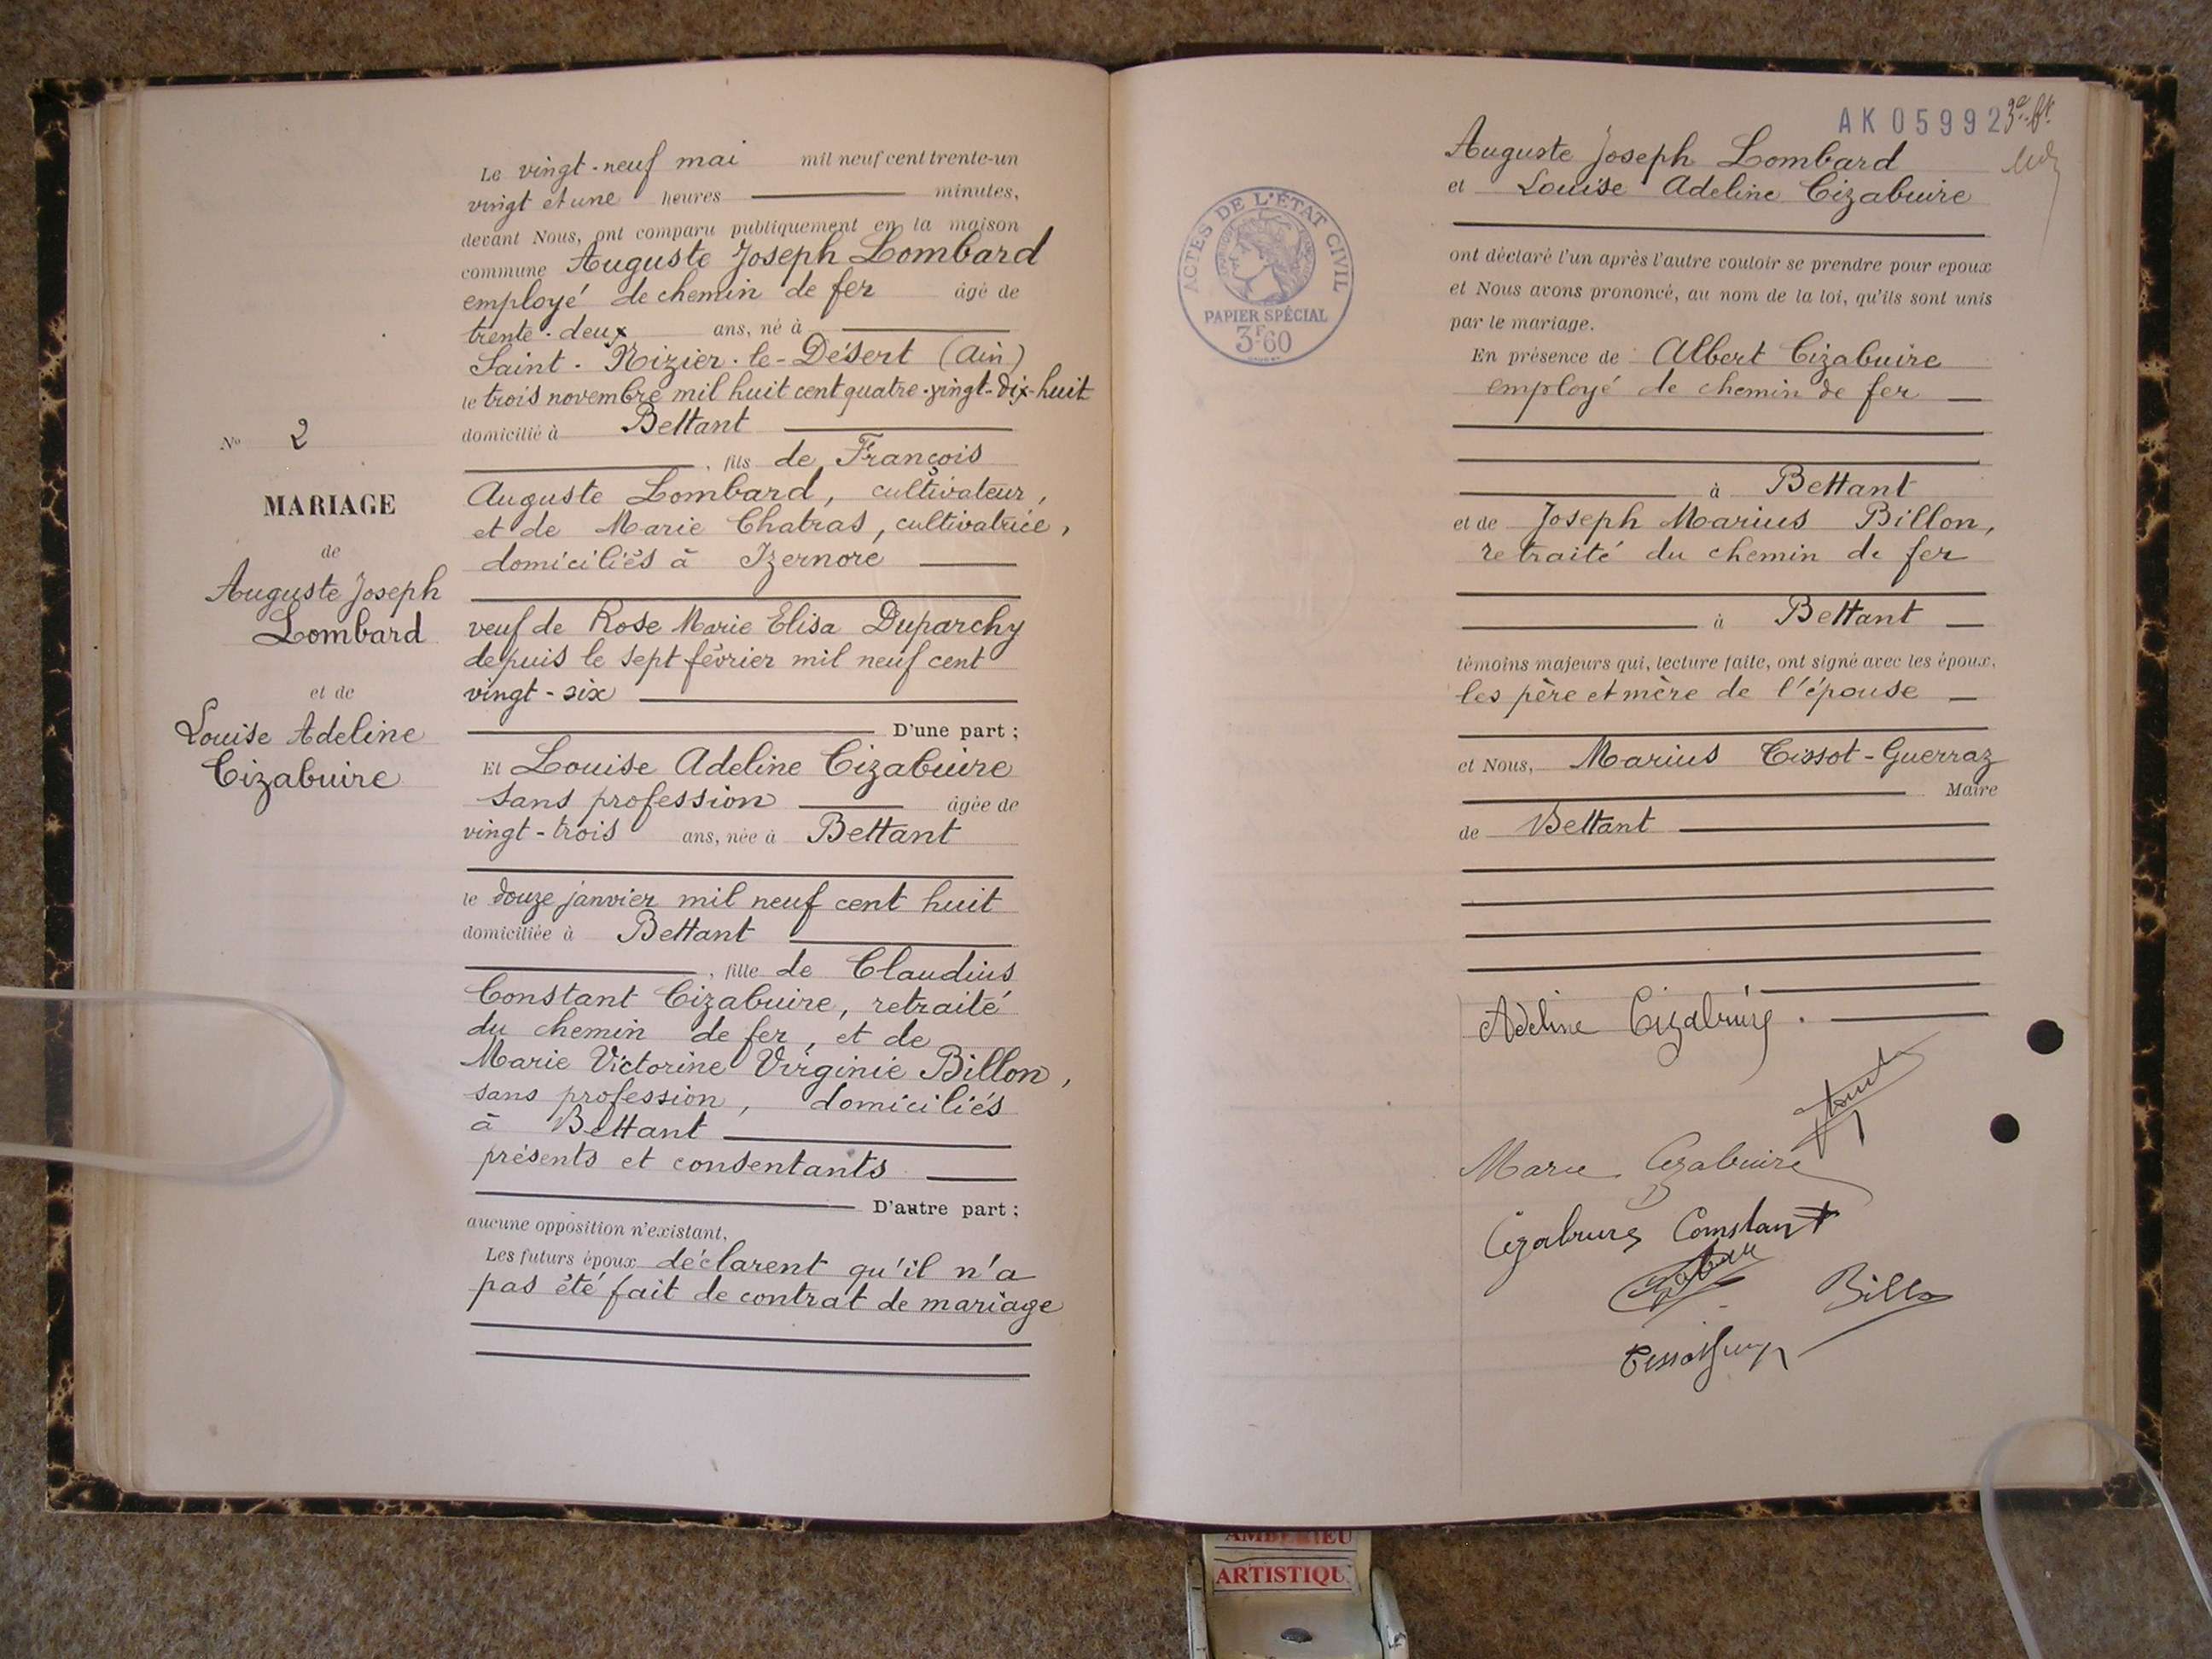 Le vingt-neuf mai mil neuf cent trente-un
vingt et une heures minutes,
devant Nous, ont comparu publiquement en la maison
commune Auguste Joseph Lombard
employé de chemin de fer âgé de
trente-deux ans, né à
Saint-Nizier-le-Désert (Ain)
le trois novembre mil huit cent quatre-vingt-dix-huit
domicilié à Bettant
, fils de François
Auguste Lombard, cultivateur,
et de Marie Chatras, cultivatrice,
domiciliés à Izernore
veuf de Rose Marie Elisa Duparchy
depuis le sept février mil neuf cent
vingt-six
D'une part ;
Et Louise Adeline Cizabuire
sans profession âgée de
vingt-trois ans, née à Bettant
le douze janvier mil neuf cent huit
domiciliée à Bettant
, fille de Claudius
Constant Cizabuire, retraité
du chemin de fer, et de
Marie Victorine Virginie Billon,
sans profession, domiciliés
à Bettant
présents et consentants
D'autre part ;
aucune opposition n'existant,
Les futurs époux déclarent qu'il n'a
pas été fait de contrat de mariage
No 2
MARIAGE
de
Auguste Joseph
Lombard
et de
Louise Adeline
Cizabuire
AK05992
Auguste Joseph Lombard
et Louise Adeline Cizabuire
ont déclaré l'un après l'autre vouloir se prendre pour epoux
et Nous avons prononcé, au nom de la loi, qu'ils sont unis
par le mariage.
En présence de Albert Cizabuire
employé de chemin de fer
à Bettant
et de Joseph Marius Billon,
retraité du chemin de fer
à Bettant
témoins majeurs qui, lecture faite, ont signé avec les époux,
les père et mère de l'épouse
et Nous, Marius Tissot-Guerraz
Maire
de Bettant
Adeline Cizabuire.
Marie Cizabuire
Cizabuire Constant
Billon
ACTES DE L'ÉTAT CIVIL
PAPIER SPÉCIAL
3F60
AMBERIEU
ARTISTIQU